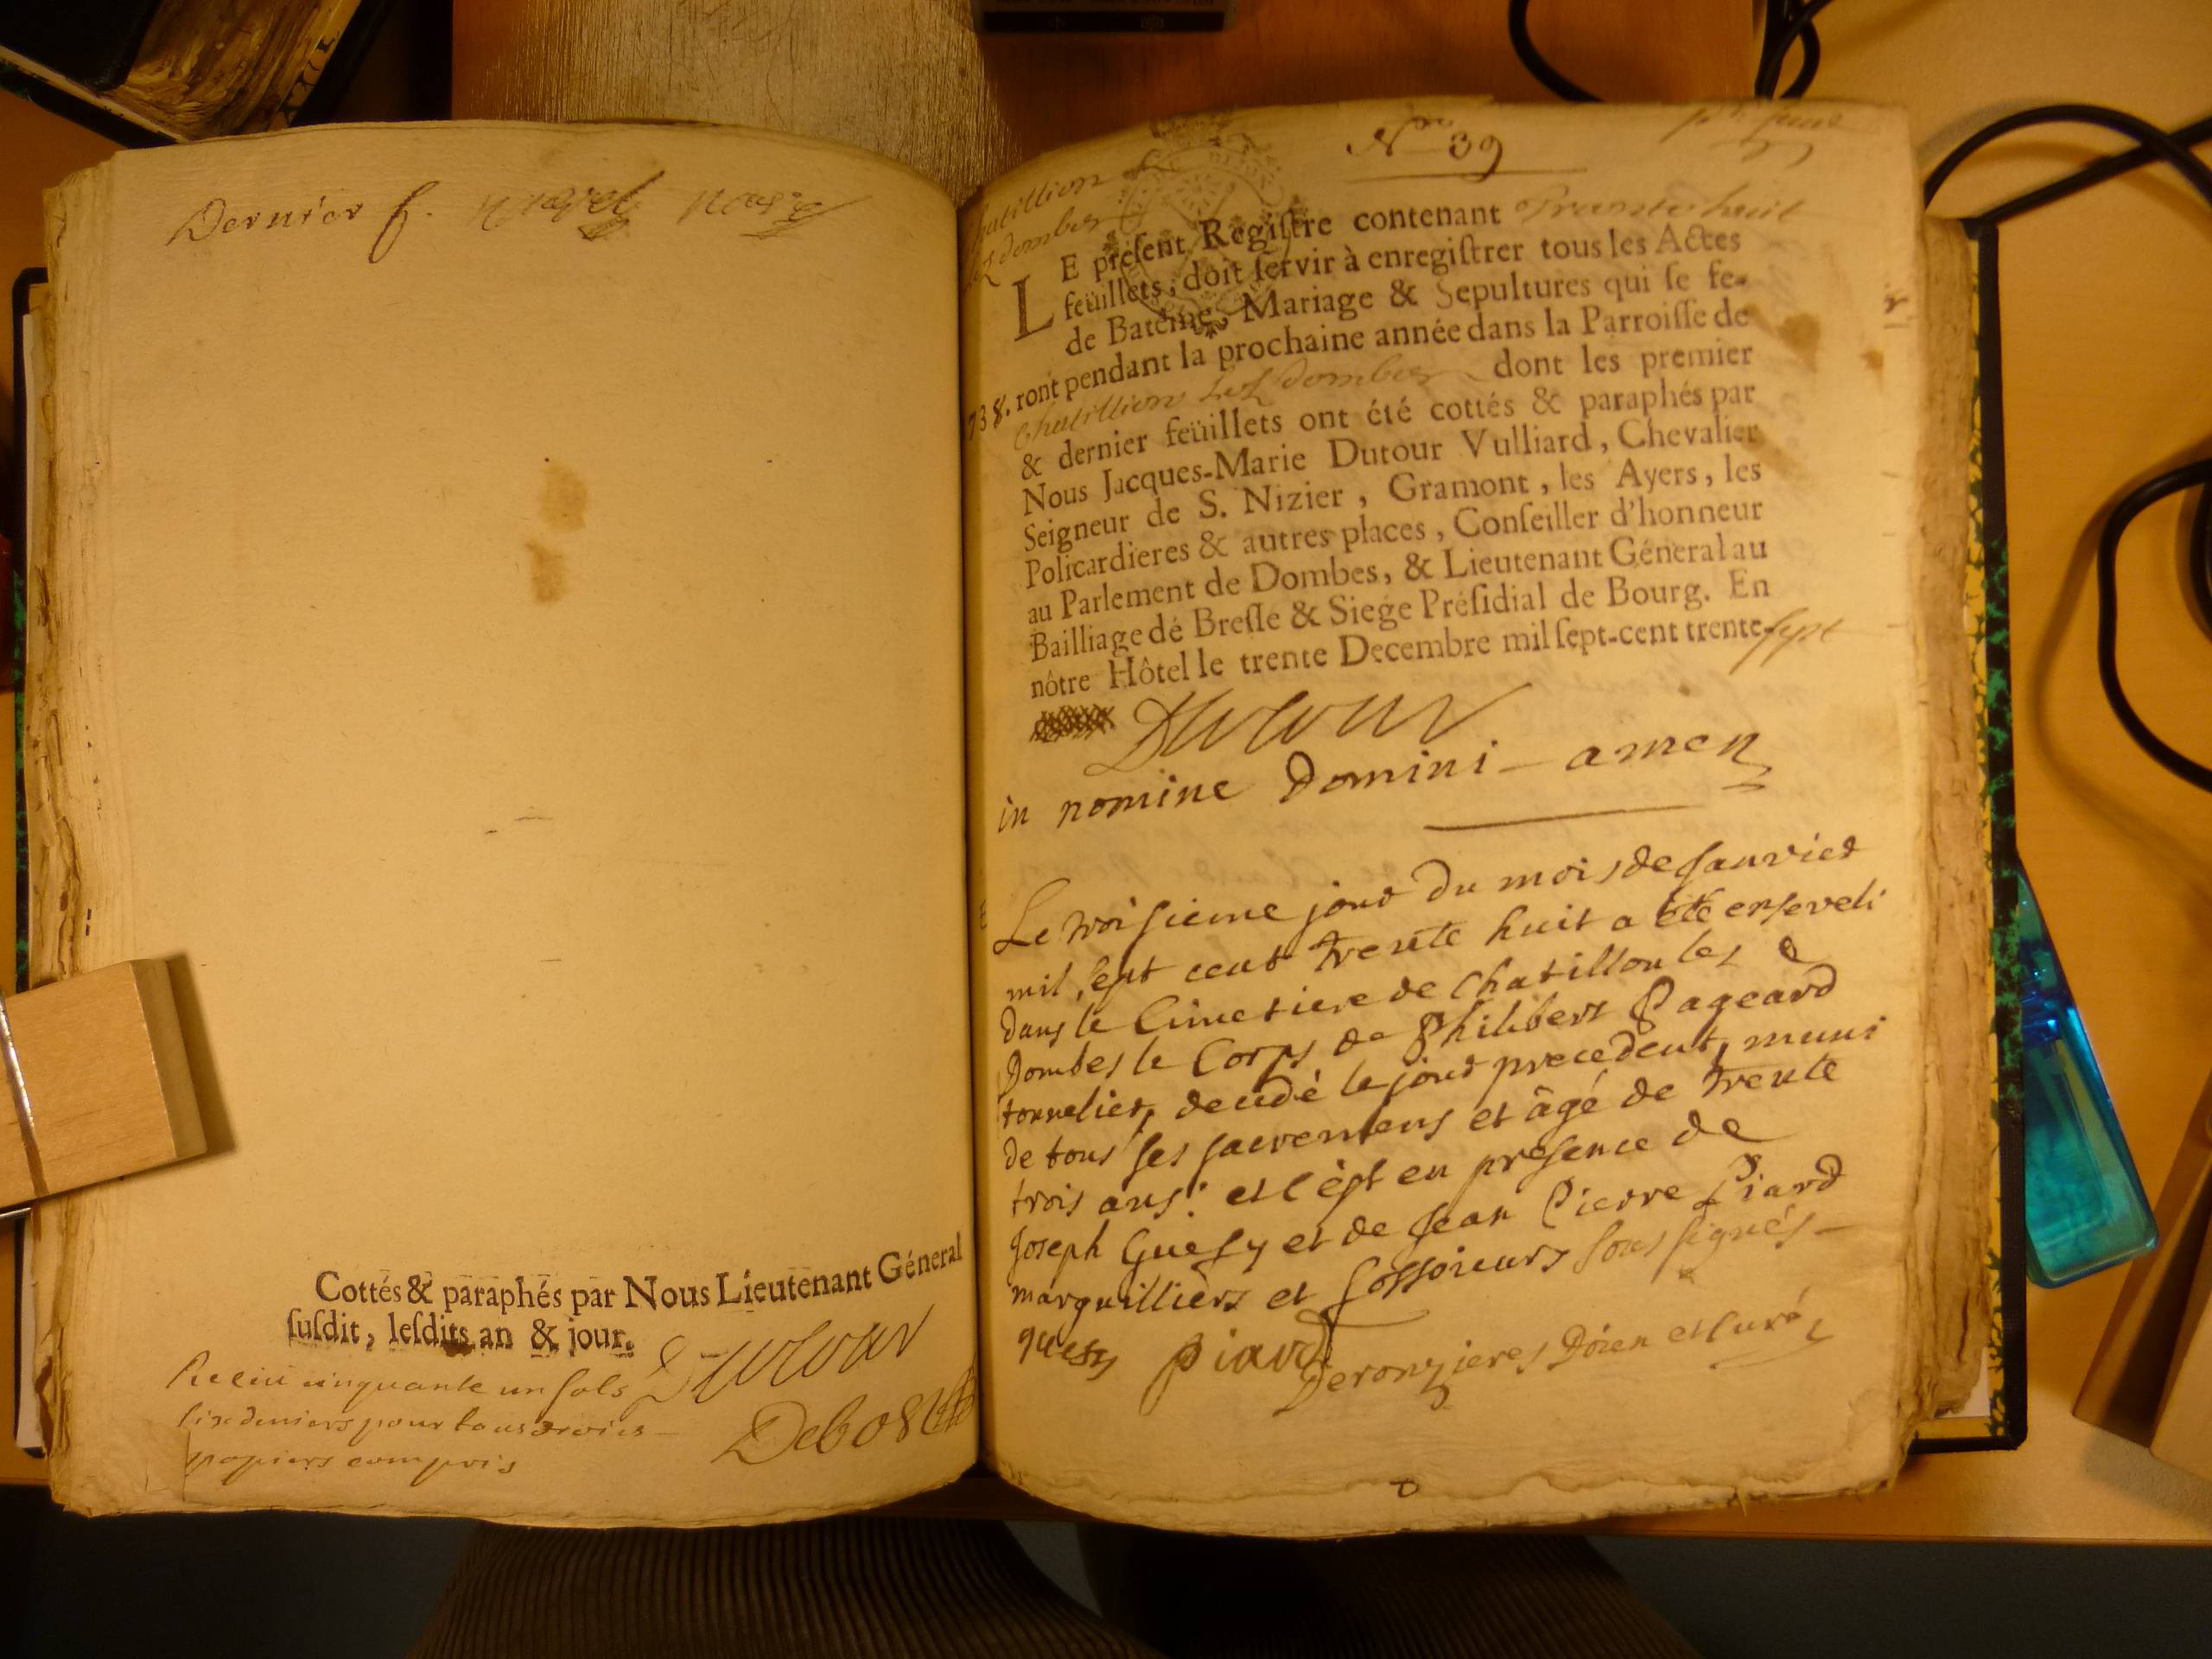 Dernier f.
Cottés & paraphés par Nous Lieutenant Géneral
ſuſdit, leſdits an & jour.
Dutour
Receu cinquante un sols
six deniers pour tous droits
papiers compris
Nro 39
pr. feuil
Chatillion
lez dombes
LE préſent Regiſtre contenant Trante huit
feüillets, doit ſervir à enregiſtrer tous les Actes
de Batême, Mariage & Sepultures qui ſe fe-
738. ront pendant la prochaine année dans la Parroiſſe de
Chatillion Lez dombes dont les premier
& dernier feüillets ont été cottés & paraphés par
Nous Jacques-Marie Dutour Vulliard, Chevalier
Seigneur de S. Nizier, Gramont, les Ayers, les
Policardieres & autres places, Conſeiller d'honneur
au Parlement de Dombes, & Lieutenant Géneral au
Bailliage dé Breſſe & Siege Préſidial de Bourg. En
nôtre Hôtel le trente Decembre mil ſept-cent trente-sept
Dutour
in nomine Domini - amen
Le troisieme jour du mois de Janvier
mil sept cent trente huit a été enseveli
dans le Cimetiere de Chatillon les
Dombes le Corps de Philibert Pageard
tonnelier, decedé le jour precedent, muni
de tous ses sacremens et âgé de trente
trois ans: et c'est en presence de
Joseph Guesy et de Jean Pierre Piard
marguilliers et fossoieurs soussignés -
guesy piard
Deronzieres Doïen et Curé